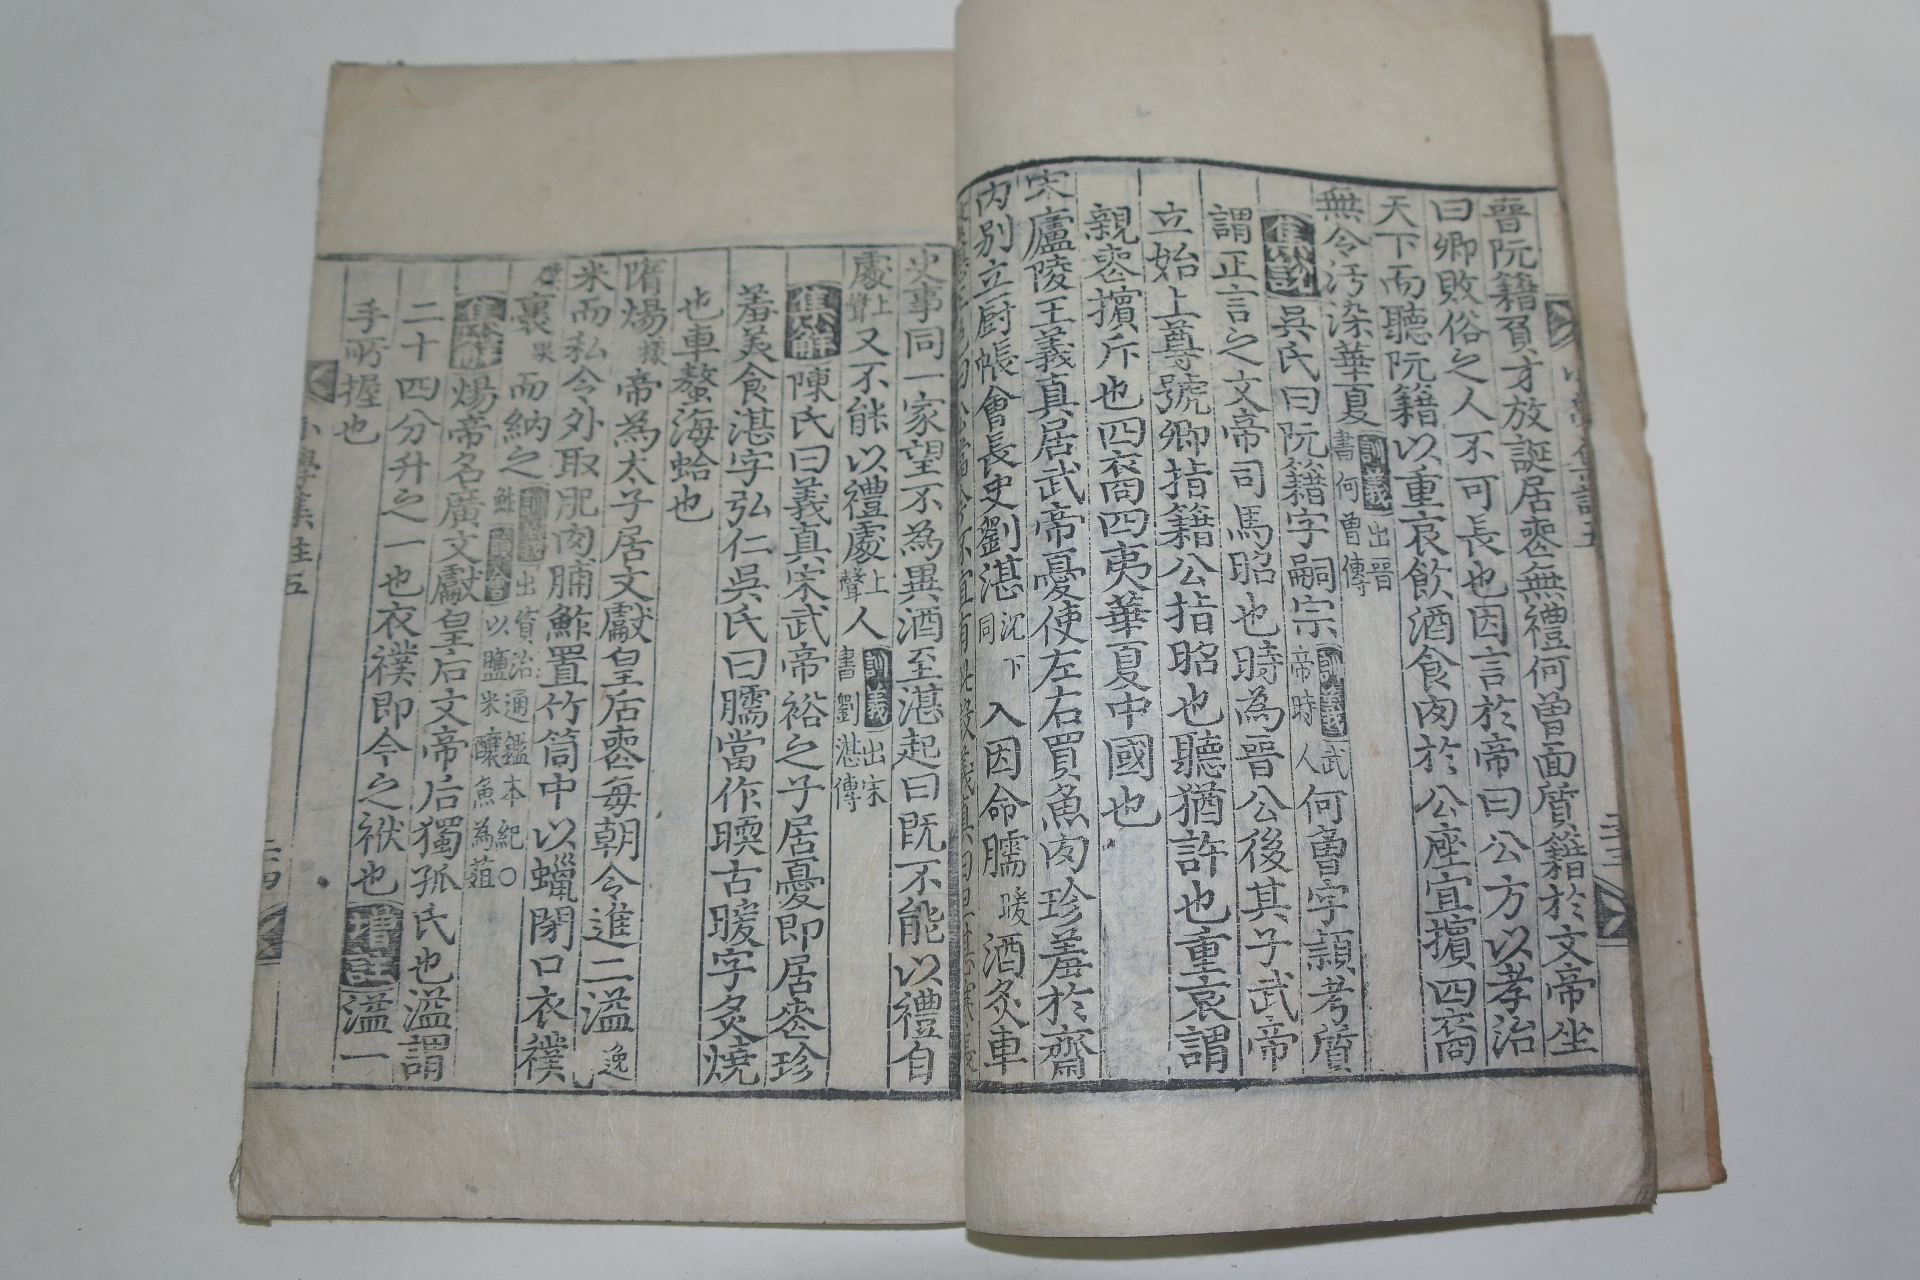 晉阮籍負才放誕居喪無禮何曾面質籍於文帝坐
曰卿敗俗之人不可長也因言於帝曰公方以孝治
天下而聽阮籍以重哀飮酒食肉於公座宜擯四裔
無令汚染華夏訓義出晉書何曾傳
集說吳氏曰阮籍字嗣宗訓義武帝時人何曾字穎考質
謂正言之文帝司馬昭也時為晉公後其子武帝
立始上尊號卿指籍公指昭也聽猶許也重哀謂
親喪擯斥也四裔四夷華夏中國也
宋廬陵王義真居武帝憂使左右買魚肉珍羞於齋
內別立厨帳會長史劉湛沈下同入因命臑暖酒炙車
史事同一家望不為異酒至湛起曰旣不能以禮自
處上聲又不能以禮處上聲人訓義出宋書劉湛傳
集解陳氏曰義真宋武帝裕之子居憂即居喪珍
羞美食湛字弘仁吳氏曰臑當作㬉古暖字炙燒
也車螯海蛤也
隋煬樣帝為太子居文獻皇后喪每朝令進二溢逸
米而私令外取肥肉脯鮓置竹筒中以蠟閉口衣襆
裹果而納之訓義出資治通鑑本紀○鮓韻會以鹽米釀魚為葅
集解煬帝名廣文獻皇后文帝后獨孤氏也溢謂
二十四分升之一也衣襆即今之袱也增註溢一
手所握也
小學集註五
二十四